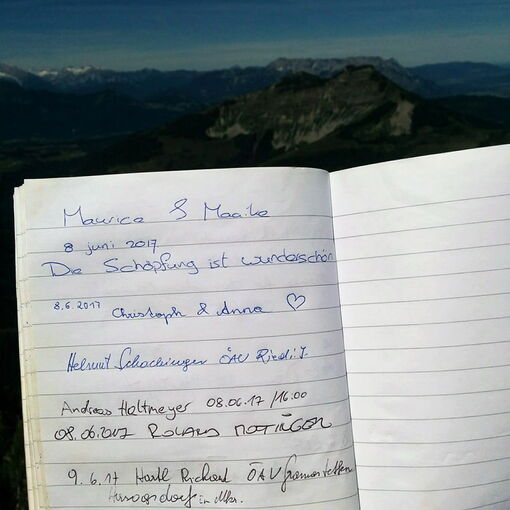 Maurice & Maaike
8 juni 2017
Die Schöpfung ist wunderschön
8.6.2017 Christoph & Anna ♡
Helmut Schachinger ÖAV Ried i. I.
Andreas Holtmeyer 08.06.17 /16.00
08.06.2017 ROLAND
9. 6. 17 Hartl Richard ÖAV
in Mkr.